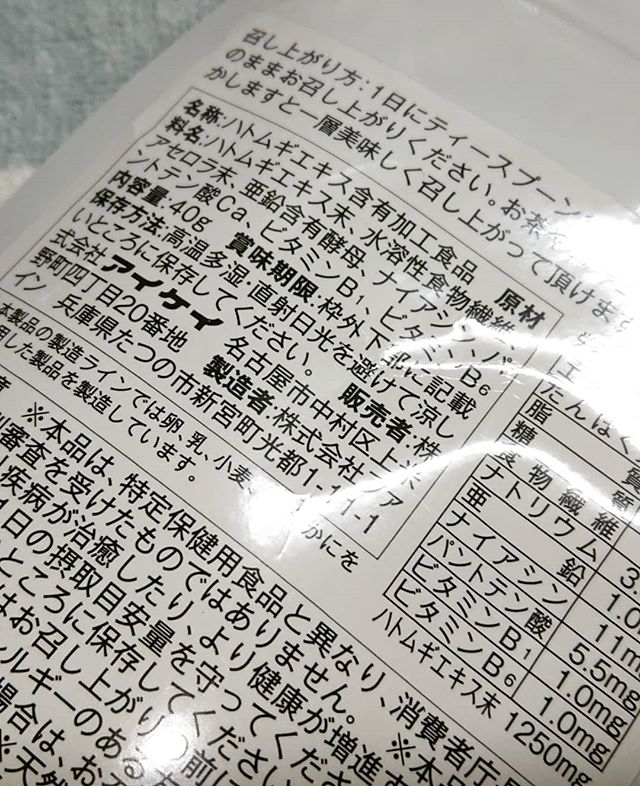 召し上がり方:1日にティースプーン
のままお召し上がりください。お茶
かしますと一層美味しく召し上がって頂けます
名称:ハトムギエキス含有加工食品 原材
料名:ハトムギエキス末、水溶性食物繊維、
アセロラ末、亜鉛含有酵母、ナイアシン、パ
ントテン酸Ca、ビタミンB1、ビタミンB6
内容量:40g 賞味期限:枠外下部に記載
保存方法:高温多湿・直射日光を避けて涼し
いところに保存してください。 販売者:株
式会社アイケイ 名古屋市中村区上米
野町四丁目20番地 製造者:株式会社ファ
イン 兵庫県たつの市新宮町光都1-11-1
本製品の製造ラインでは卵、乳、小麦、 かにを
用した製品を製造しています。
たんぱく
脂
糖 質
食物繊維
ナトリウム 3
亜 鉛 1.0
ナイアシン 11m
パントテン酸 5.5mg
ビタミンB1 1.0mg
ビタミンB6 1.0mg
ハトムギエキス末 1250mg
※本品は、特定保健用食品と異なり、消費者庁
別審査を受けたものではありません。 ※本品
疾病が治癒したり、より健康が増進
日の摂取目安量を守ってくださ
ところに保存してください
はお召し上がりの前に
レルギーのある
場合は、お
※天然